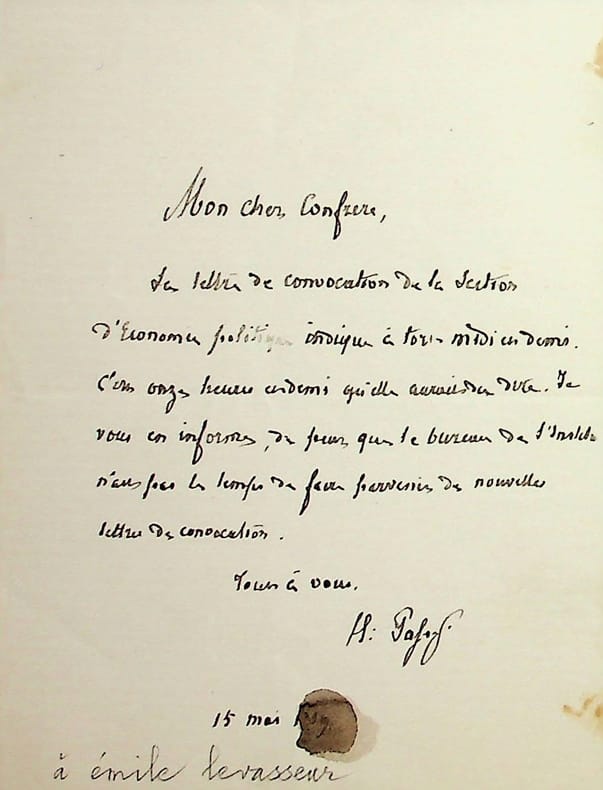 Mon cher Confrère,
La lettre de convocation de la Section
d'Economie politique indique à tort midi et demi.
C'est onze heures et demi qu'elle aurait dû dire. Je
vous en informe, de peur que le bureau de l'Institut
n'ait pas le temps de faire parvenir de nouvelles
lettres de convocation.
Tout à vous.
H. Passy.
15 mai
à émile levasseur